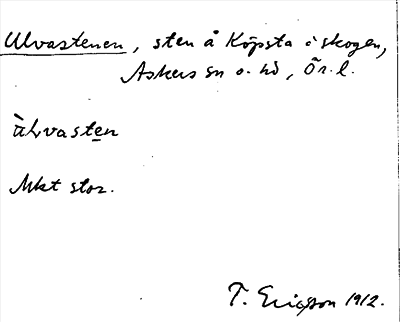 Ulvastenen, sten å Köpsta i skogen,
Askers sn o. hd, Ör. l.
ùlvasten
Mkt stor.
T. Ericsson 1912.